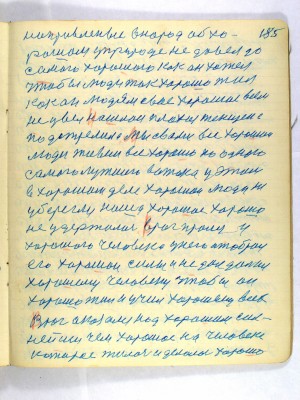 185
направление в народ а б хо
рошом в природе не довел до
самого хорошого как он хотел
чтобы люди так хорошо жил
как он людям свое хорошее всем
не увел нашлися плохие текущие
подстрелили. Мы свами все хорошии
люди жили все хорошо но одного
самого лутшего ростка у этом
в хорошим деле хорошии люди ни
уберегли нашо хорошое хорошо
не удержали враг пришел у
хорошого человека у него отобрал
его хороший силы и не дал дальше
хорошему человеку чтобы он
хорошо жил и учил хорошему всех
Враг оказался над хорошим сил-
нейший чем хорошое на человеке
которое жило и делало хорошо